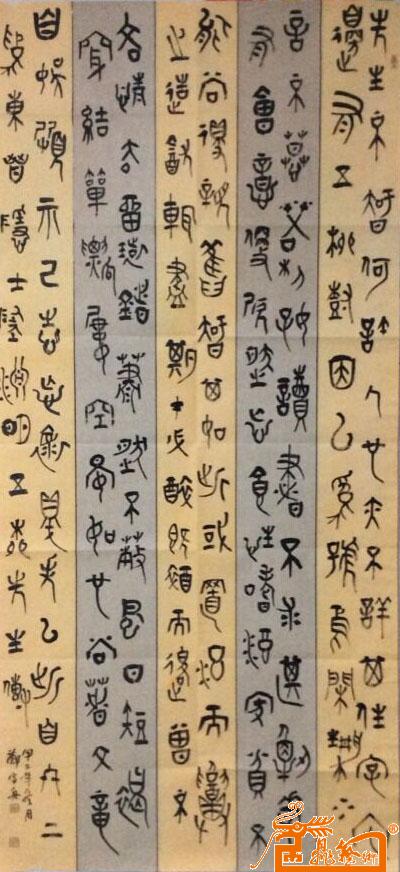 先生不知何許人也亦不詳其姓字宅
邊有五柳樹因以爲號焉閑靜少
言不慕榮利好讀書不求甚解每
有會意便欣然忘食性嗜酒家貧不
能常得親舊知其如此或置酒而招
之造飲輒盡期在必醉既醉而退曾不
吝情去留環堵蕭然不蔽風日短褐
穿結簞瓢屢空晏如也常著文章
自娛頗示己志忘懷得失以此自終
東晉隱士陶淵明五柳先生傳
甲午年